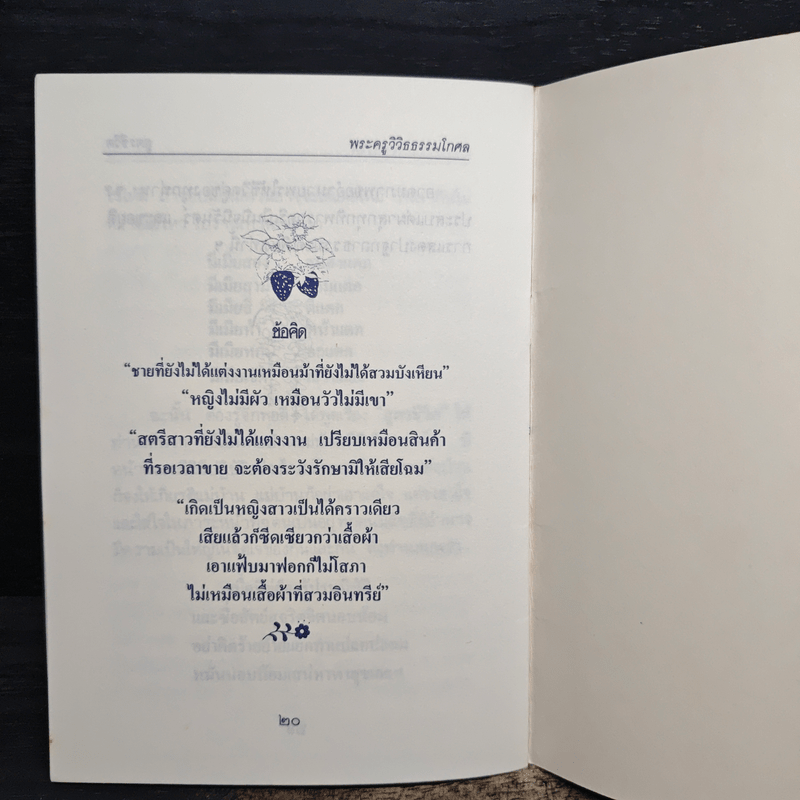 พระครูวิวิธธรรมโกศล
ข้อคิด
“ชายที่ยังไม่ได้แต่งงานเหมือนม้าที่ยังไม่ได้สวมบังเหียน”
“หญิงไม่มีผัว เหมือนวัวไม่มีเขา”
“สตรีสาวที่ยังไม่ได้แต่งงาน เปรียบเหมือนสินค้า
ที่รอเวลาขาย จะต้องระวังรักษามิให้เสียโฉม”
“เกิดเป็นหญิงสาวเป็นได้คราวเดียว
เสียแล้วก็ซีดเซียวกว่าเสื้อผ้า
เอาแฟ้บมาฟอกก็ไม่โสภา
ไม่เหมือนเสื้อผ้าที่สวมอินทรีย์”
๒๐